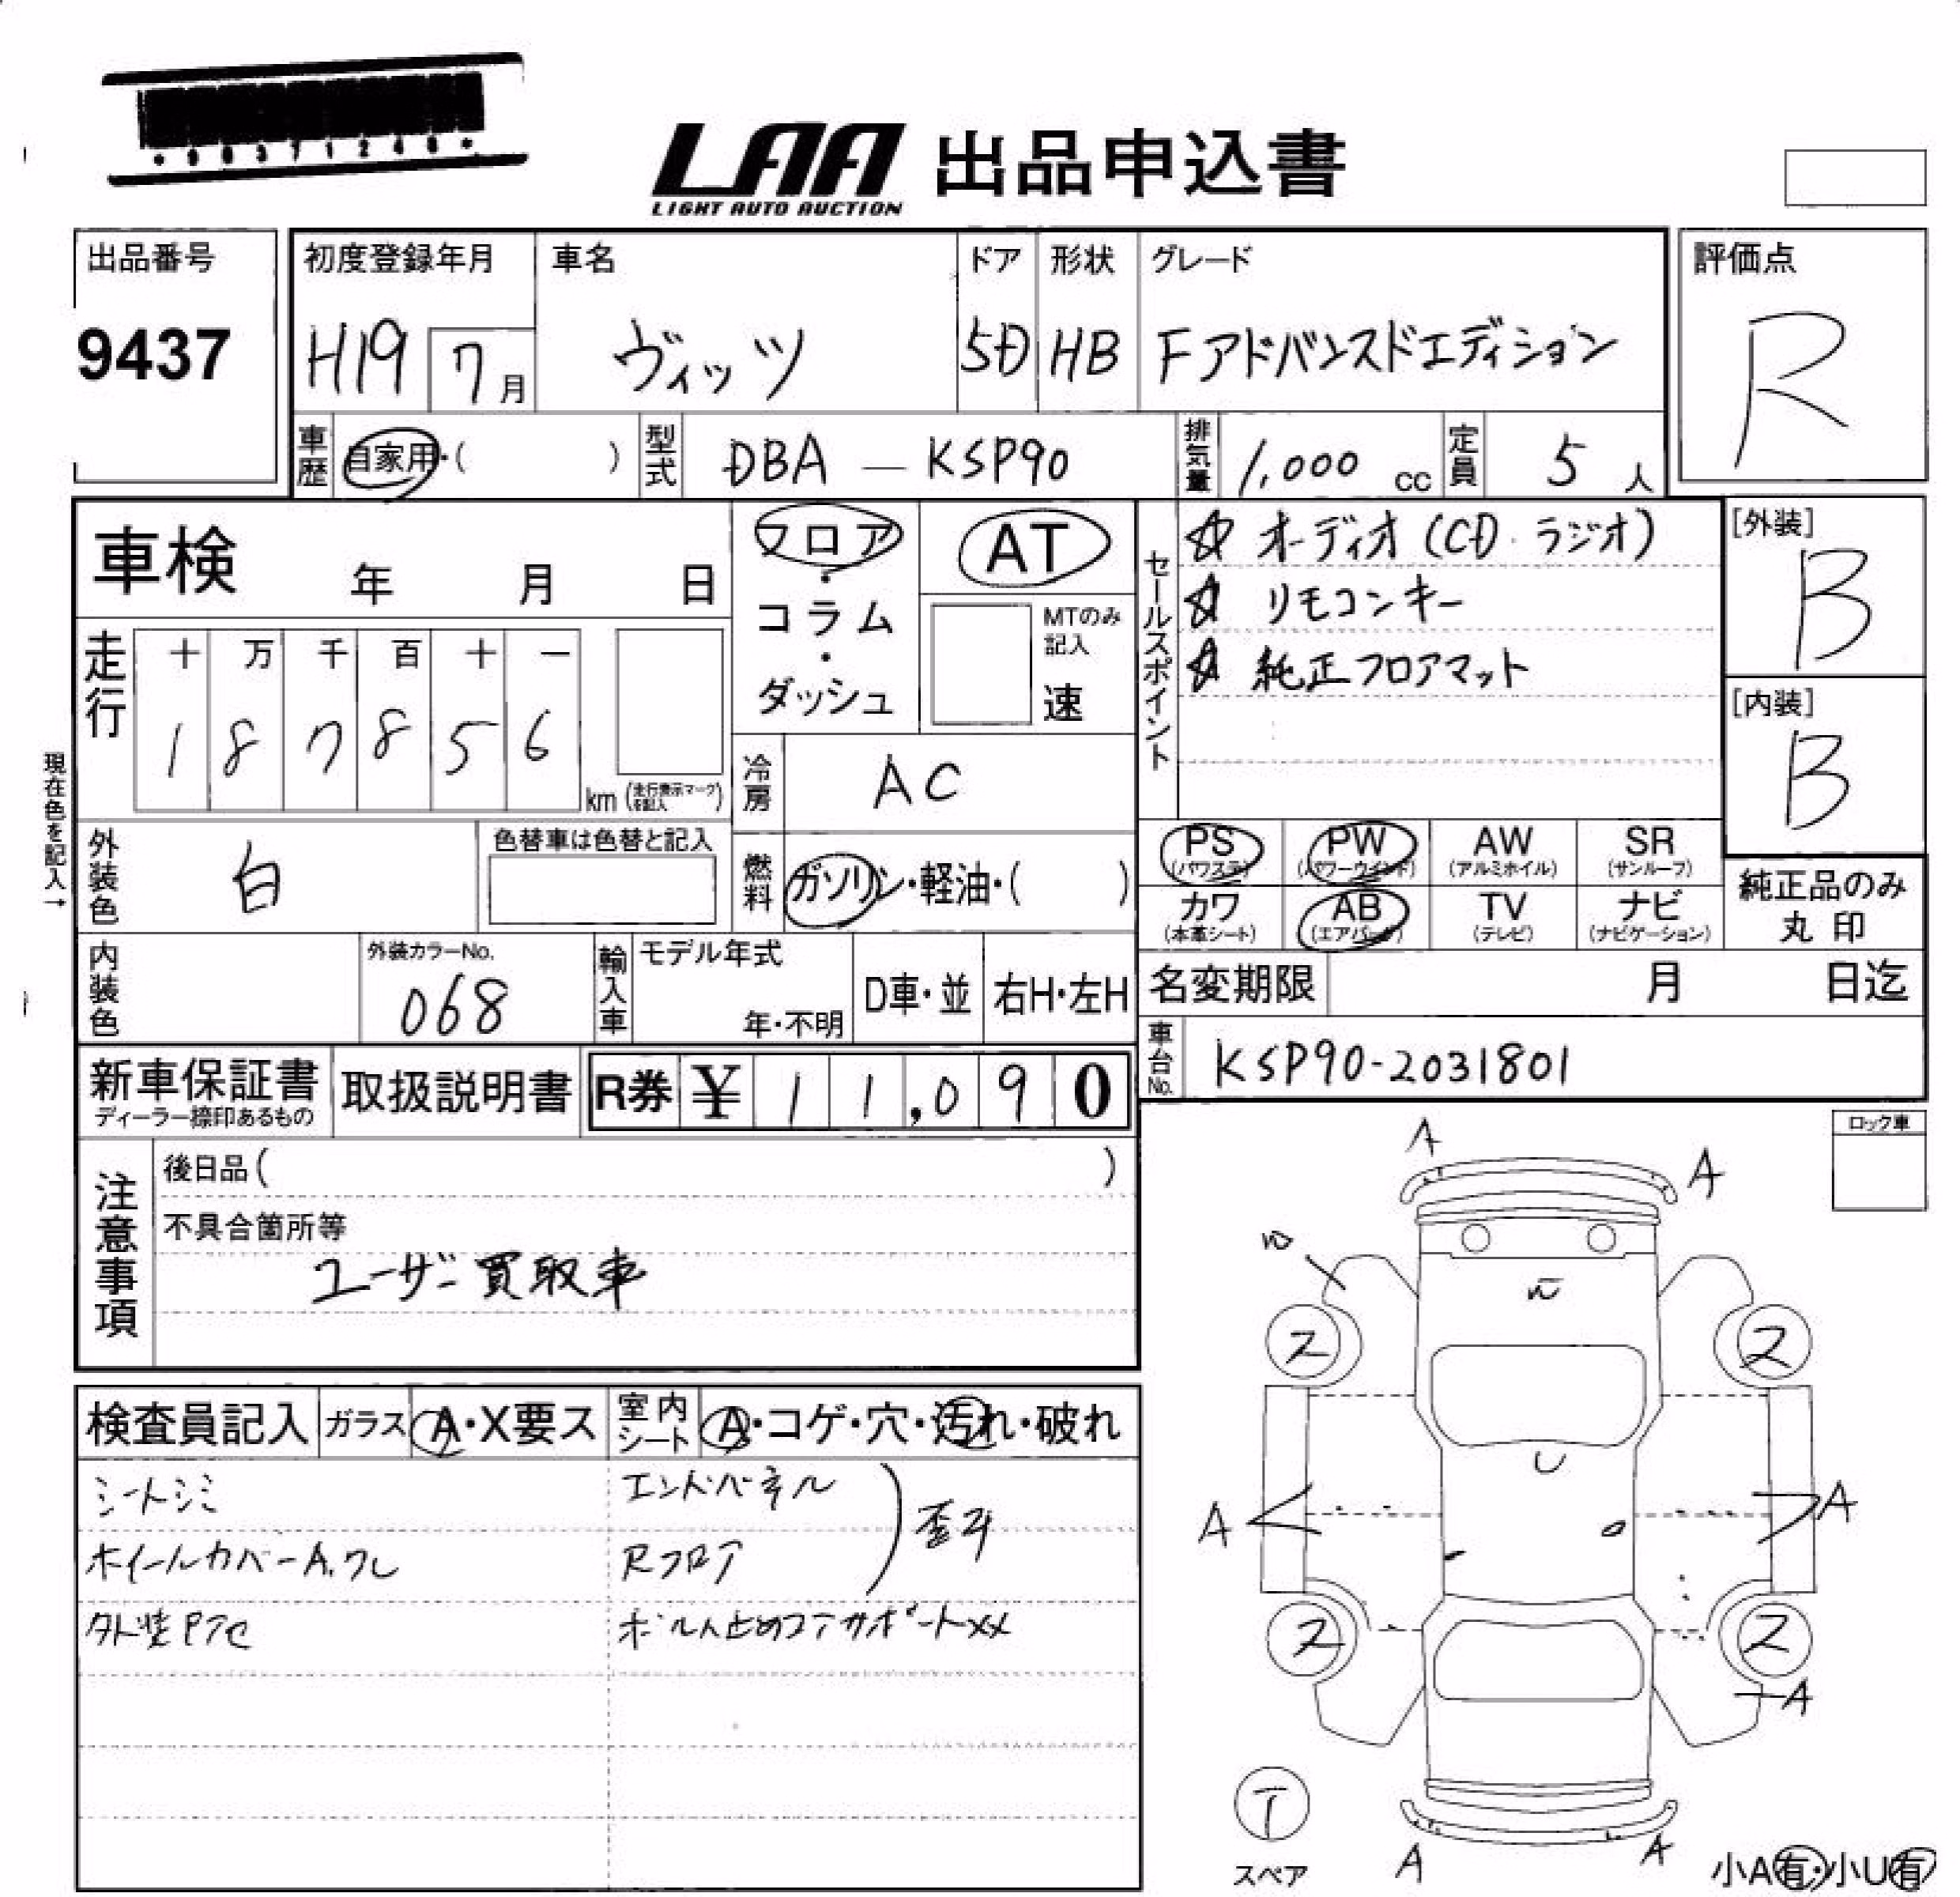 LAA 出品申込書
LIGHT AUTO AUCTION
出品番号
9437
初度登録年月
H19 7月
車名
ヴィッツ
ドア
5D
形状
HB
グレード
Fアドバンスドエディション
評価点
R
車歴 自家用・( )
型式 DBA — KSP90
排気量 1,000 cc
定員 5 人
車検 年 月 日
フロア・コラム・ダッシュ
AT
MTのみ記入
速
セールスポイント
☆ オーディオ(CD・ラジオ)
☆ リモコンキー
☆ 純正フロアマット
[外装]
B
[内装]
B
走行
十 万 千 百 十 一
1 8 7 8 5 6
km (走行表示マークを記入)
現在色を記入→
冷房 AC
外装色 白
色替車は色替と記入
燃料 ガソリン・軽油・( )
PS (パワステ)
PW (パワーウインド)
AW (アルミホイル)
SR (サンルーフ)
カワ (本革シート)
AB (エアバッグ)
TV (テレビ)
ナビ (ナビゲーション)
純正品のみ丸印
内装色
外装カラーNo.
068
輸入車
モデル年式
年・不明
D車・並
右H・左H
名変期限 月 日迄
車台No. KSP90-2031801
新車保証書
ディーラー捺印あるもの
取扱説明書
R券 ¥ 11,090
注意事項
後日品( )
不具合箇所等
ユーザー買取車
ロック車
検査員記入
ガラス A・X要ス
室内シート A・コゲ・穴・汚れ・破れ
シートシミ
ホイールカバーA.ワレ
外装Pアセ
エンドパネル
Rフロア
歪み
ボルト止めコアサポートXX
A
A
W
W
ス
ス
U
A
A
ス
ス
A
T
スペア
A
A
小A有・小U有